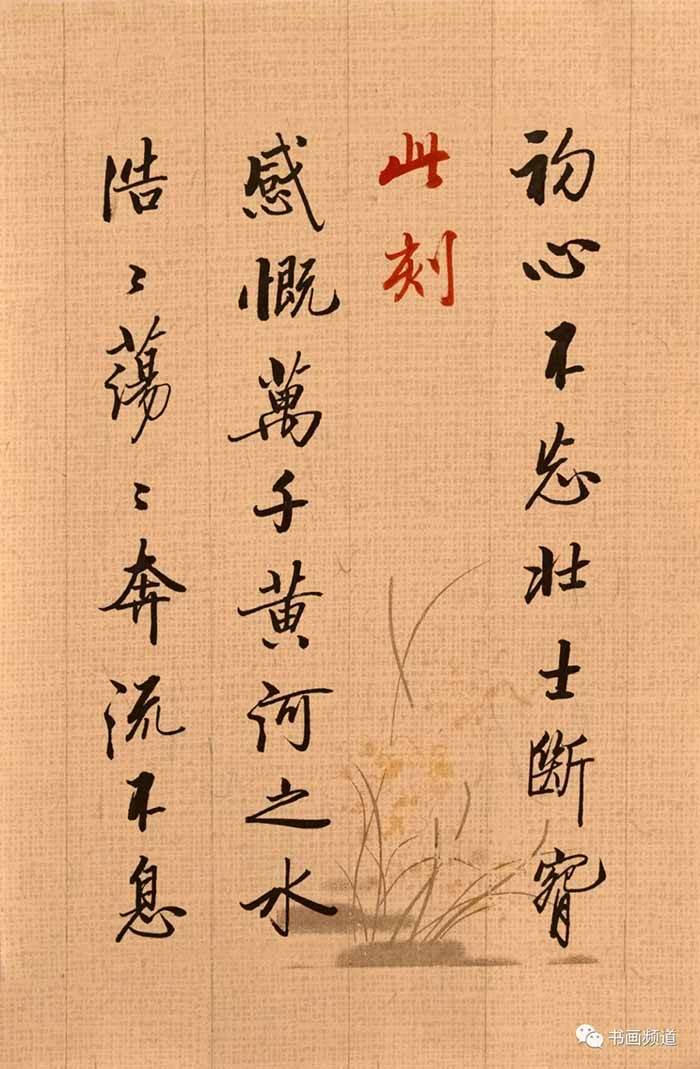 初心不忘壮士斷腕
此刻
感慨萬千黄河之水
浩〻蕩〻奔流不息
书画频道